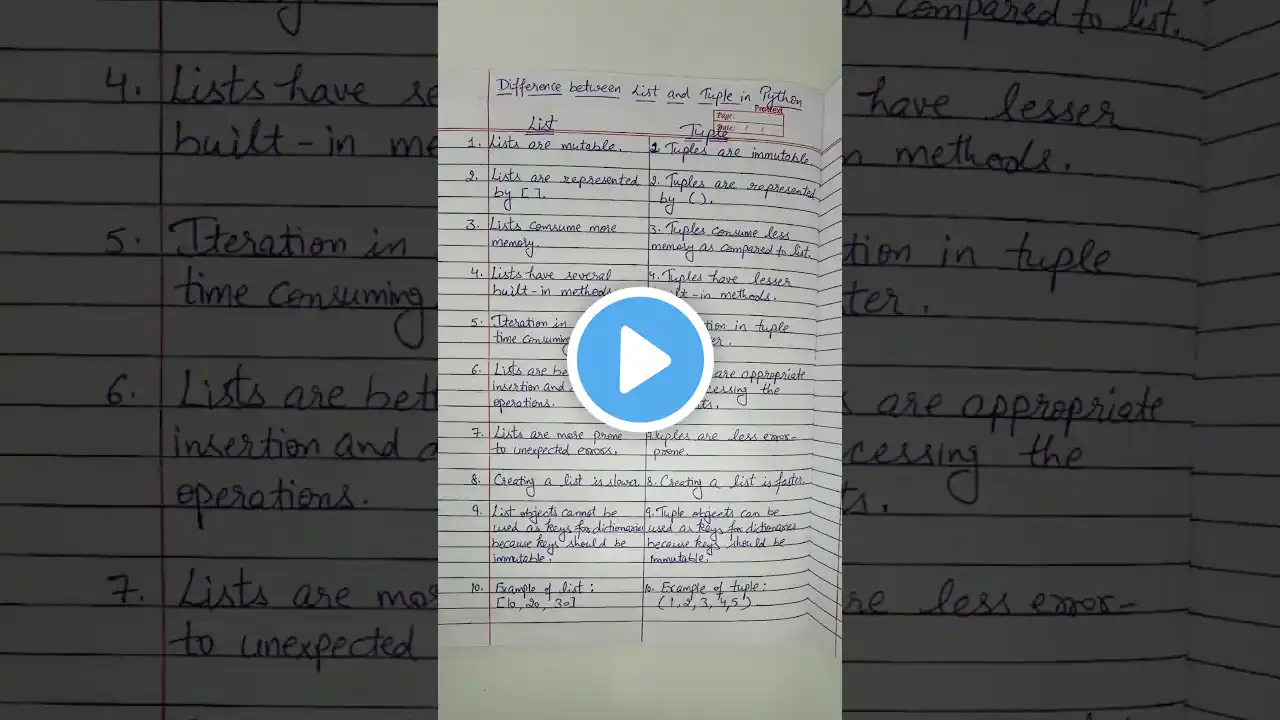 Difference between List and Tuple in Python
Page:
Date: / /
List
Tuple
1. Lists are mutable.
1. Tuples are immutable.
2. Lists are represented
by [ ].
2. Tuples are represented
by ( ).
3. Lists comsume more
memory.
3. Tuples consume less
memory as compared to list.
4. Lists have several
built-in methods
4. Tuples have lesser
built-in methods.
5. Iteration in
time consuming
in tuple
6. Lists are
insertion and
operations.
are appropriate
the
7. Lists are more prone
to unexpected errors.
7. Tuples are less error-
prone.
8. Creating a list is slower
8. Creating a list is faster.
9. List objects cannot be
used as keys for dictionaries
because keys should be
immutable.
9. Tuple objects can be
used as keys for dictionaries
because keys should be
immutable.
10. Example of list :
[10, 20, 30]
10. Example of tuple:
(1, 2, 3, 4, 5).
as compared to list.
4. Lists have
built-in
have lesser
methods.
5. Iteration in
time consuming
in tuple
6. Lists are
insertion and
operations.
are appropriate
the
7. Lists are
to unexpected
less error-